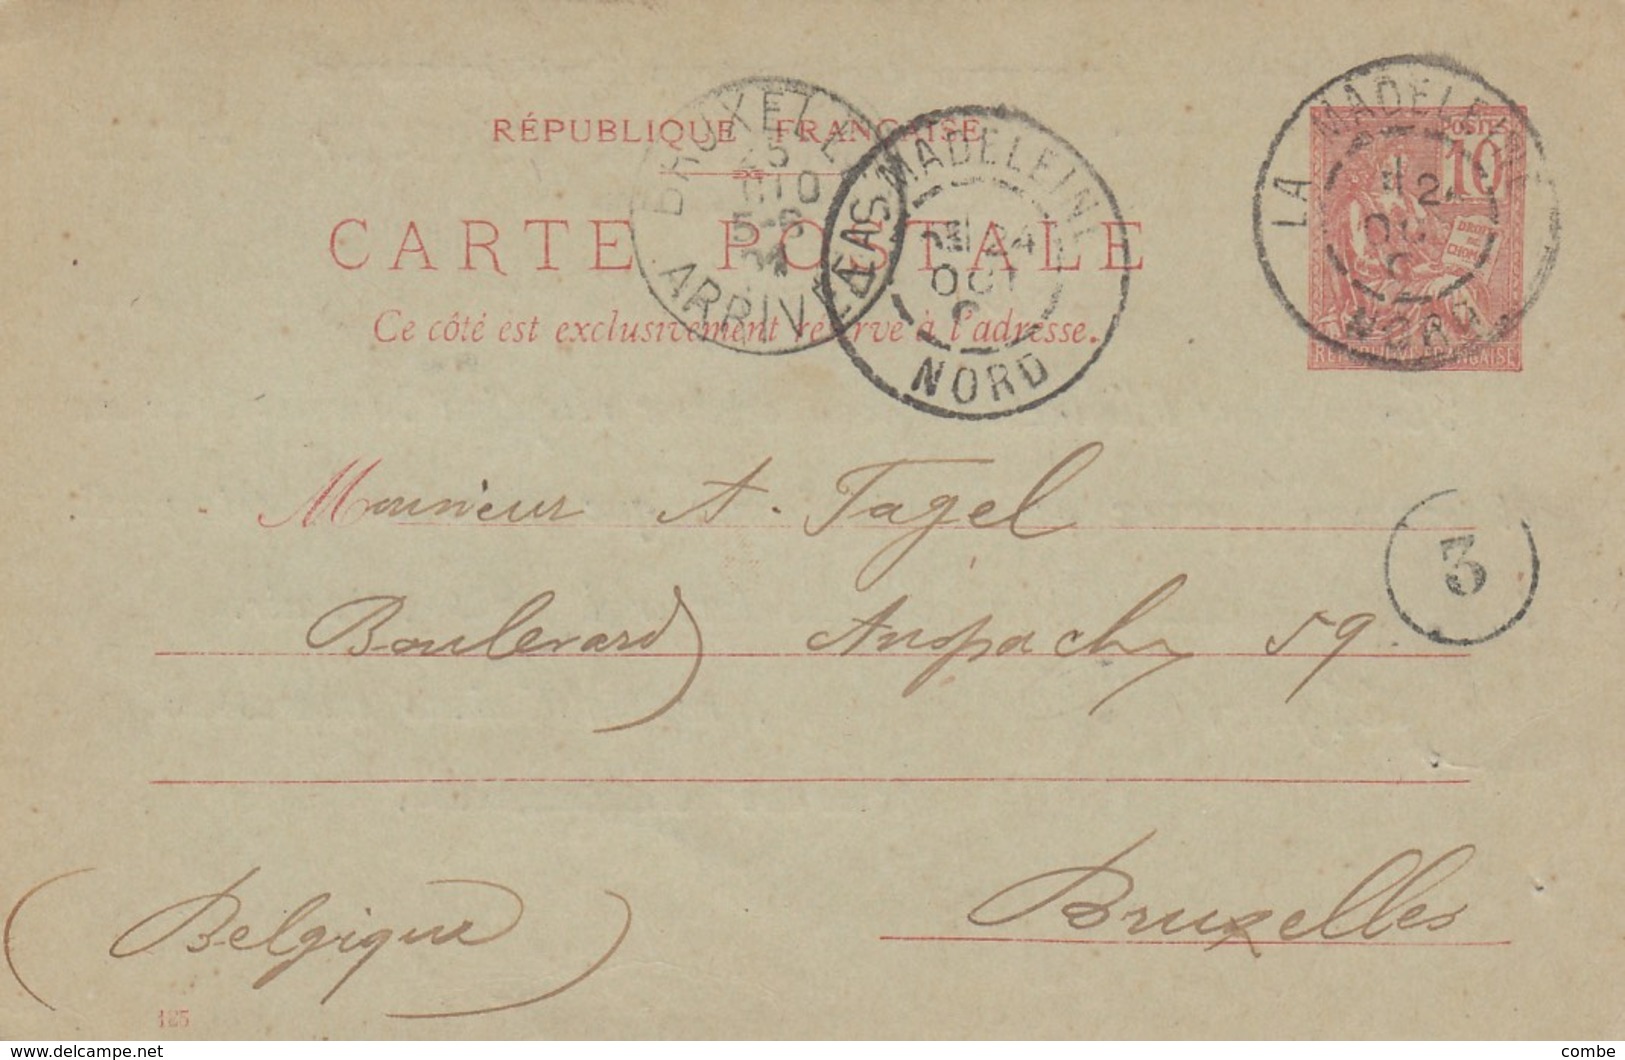 RÉPUBLIQUE FRANÇAISE
CARTE POSTALE
Ce côté est exclusivement réservé à l'adresse.
BRUXELLES
25
5-6
ARRIVÉE
LA MADELEINE
24
OCT
NORD
LA MADELEINE
OCT
NORD
POSTES
10
DROITS
DE
L'HOMME
REPUBLIQUE FRANÇAISE
Monsieur A. Fagel
Boulevard Anspach 59
3
Bruxelles
(Belgique)
125
www.delcampe.net
combe